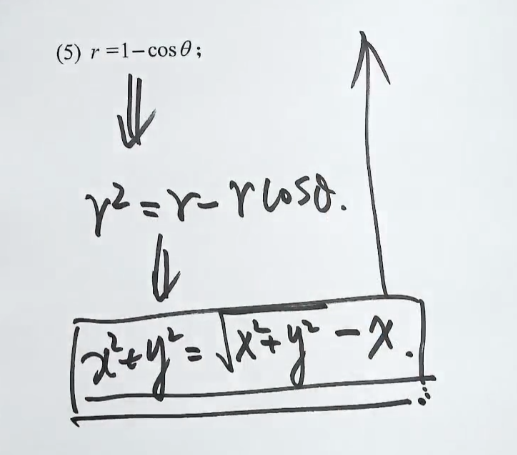 (5) r=1−cosθ;
r²=r−rcosθ.
x²+y²=√(x²+y²)−x.